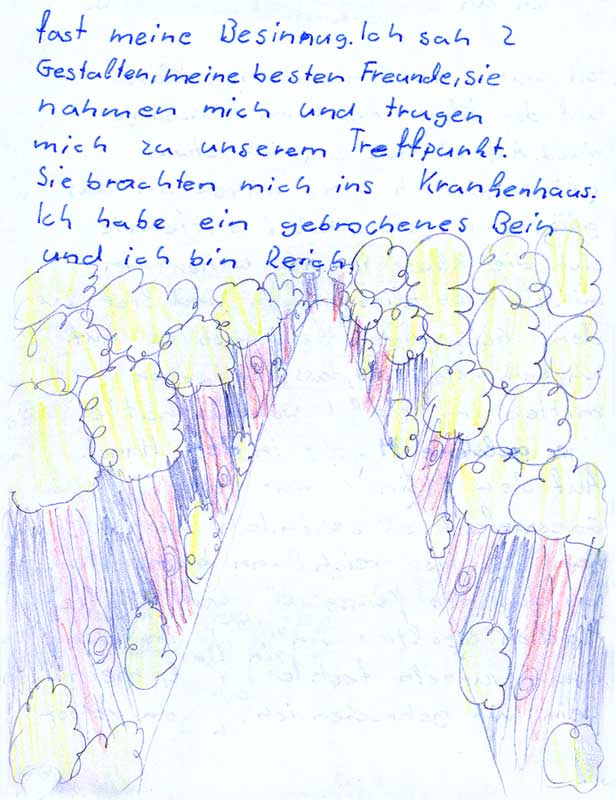 fast meine Besinnug. Ich sah 2
Gestalten, meine besten Freunde, sie
nahmen mich und trugen
mich zu unserem Treffpunkt.
Sie brachten mich ins Krankenhaus.
Ich habe ein gebrochenes Bein
und ich bin Reich.